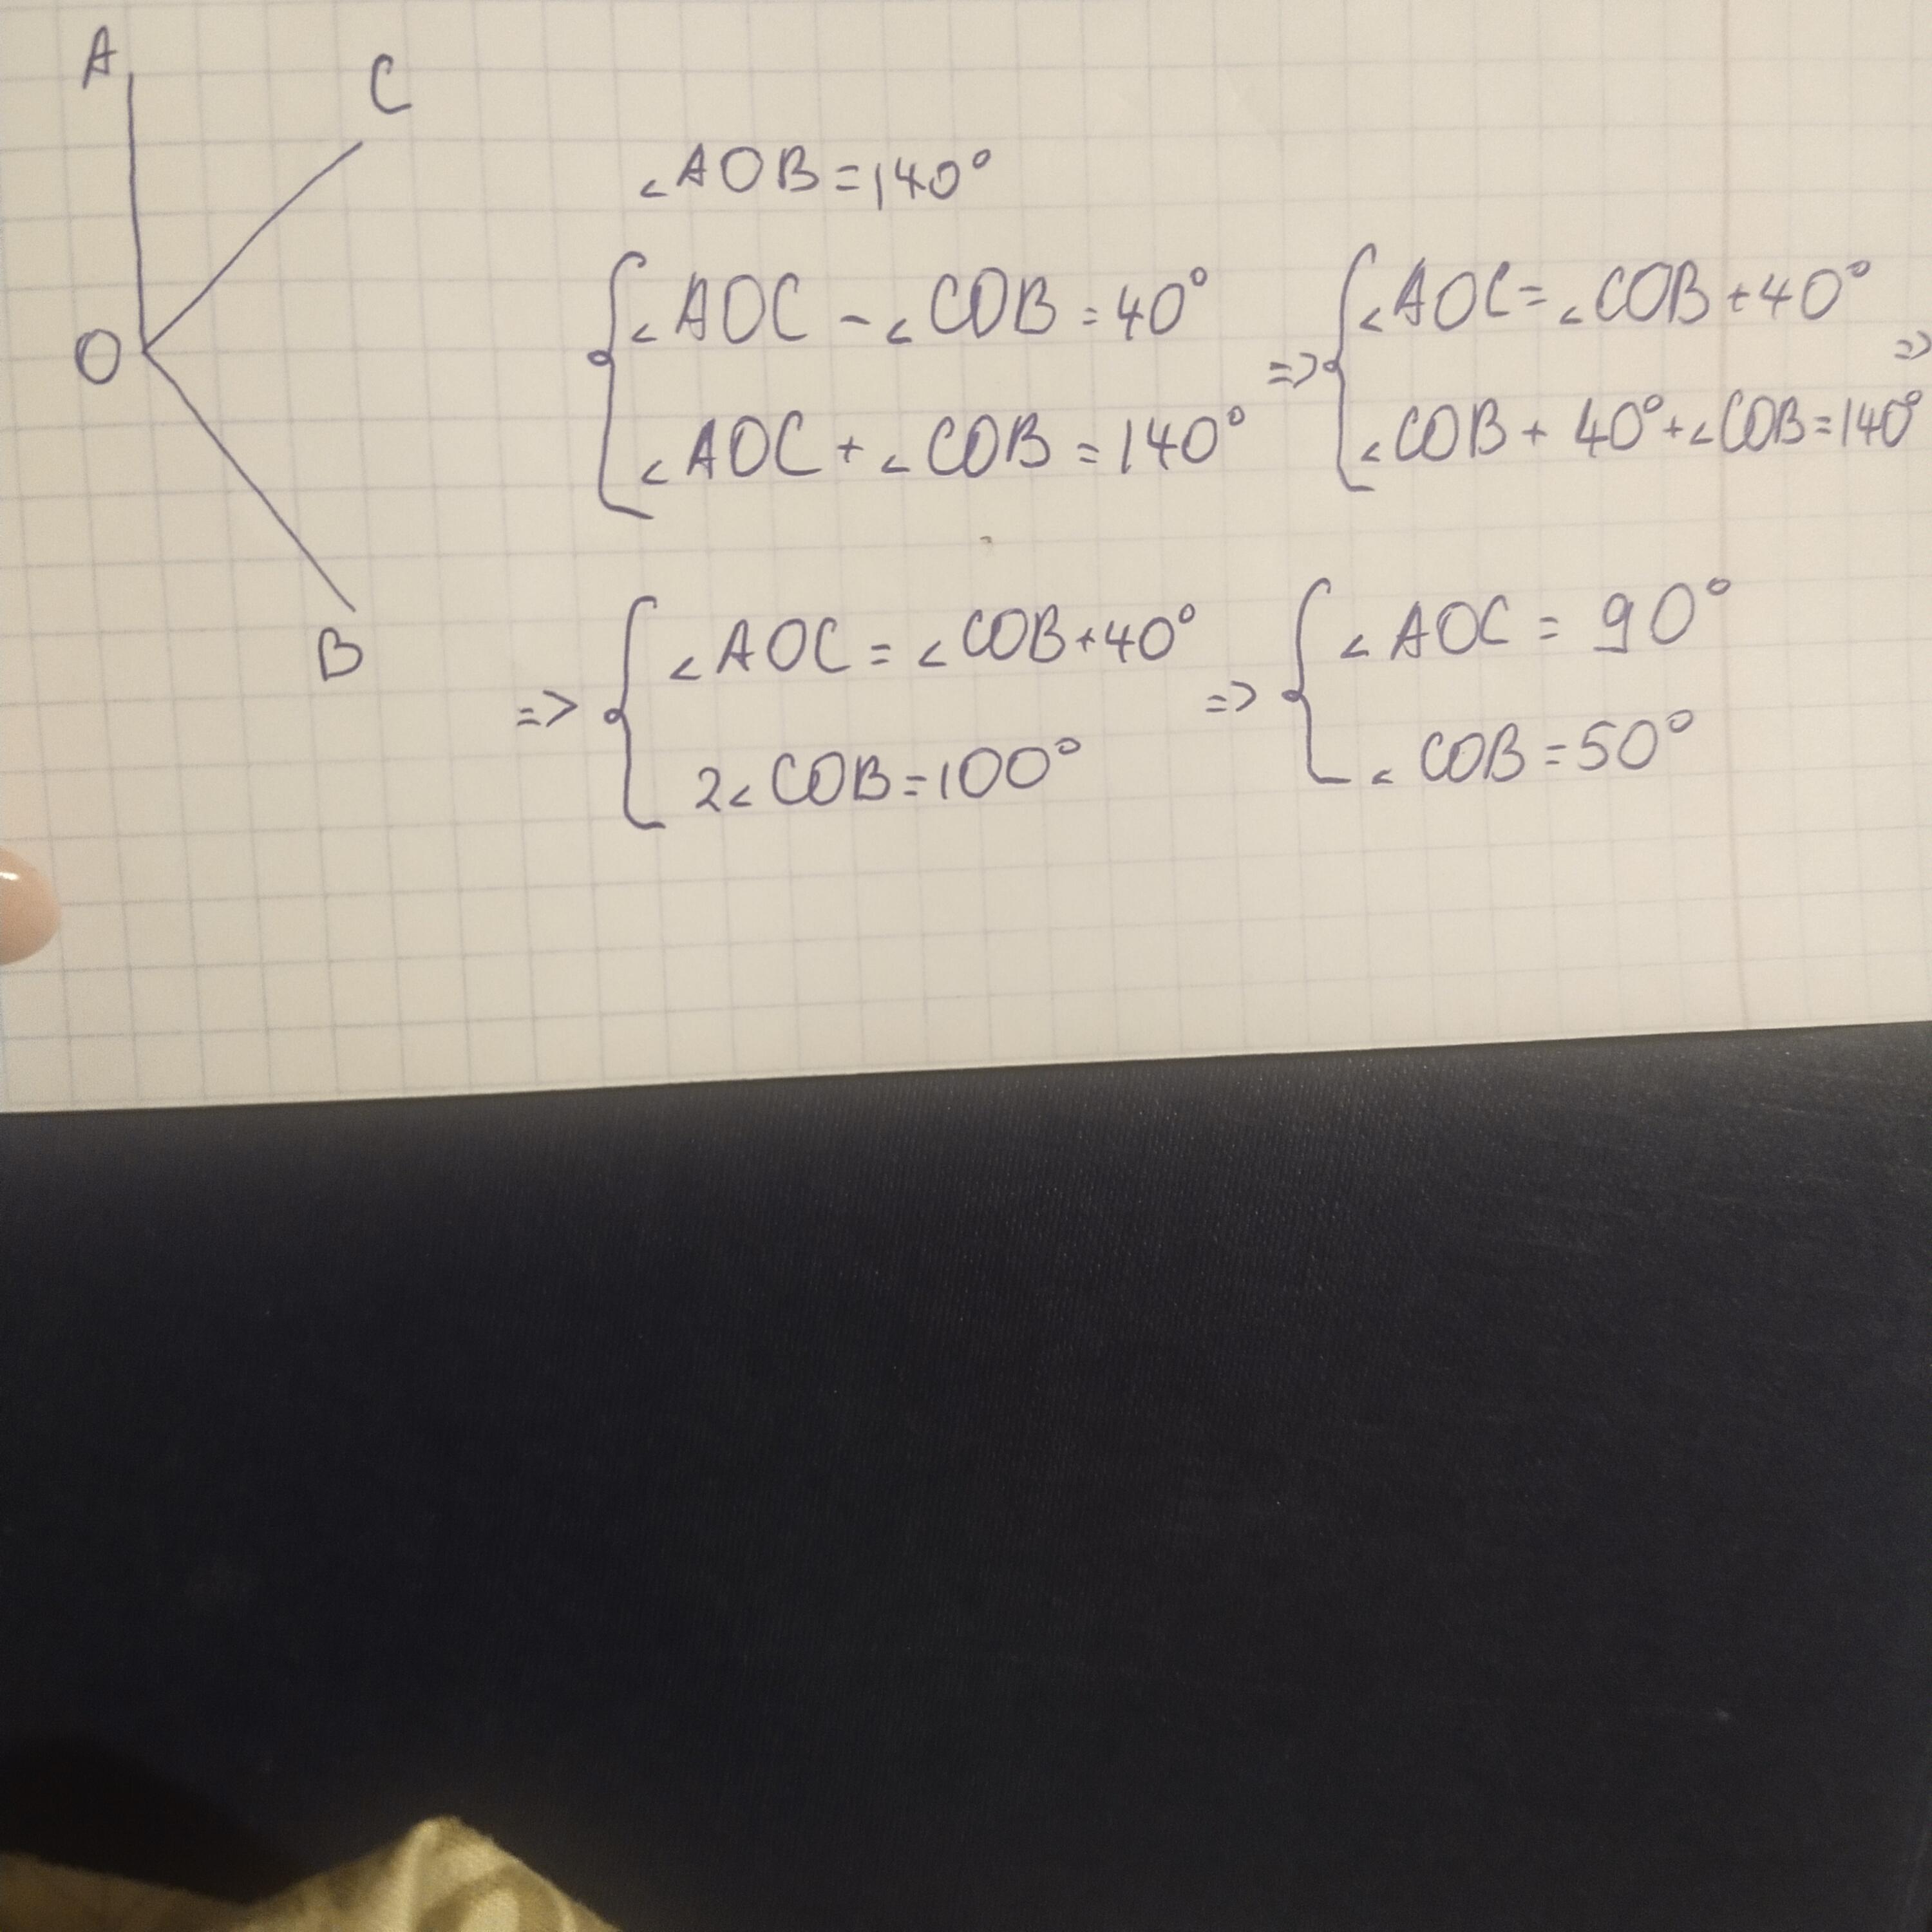 A
C
O
B
∠AOB=140°
{∠AOC-∠COB=40°
∠AOC+∠COB=140°
=> {∠AOC=∠COB+40°
∠COB+40°+∠COB=140° =>
=> {∠AOC=∠COB+40°
2∠COB=100°
=> {∠AOC=90°
∠COB=50°